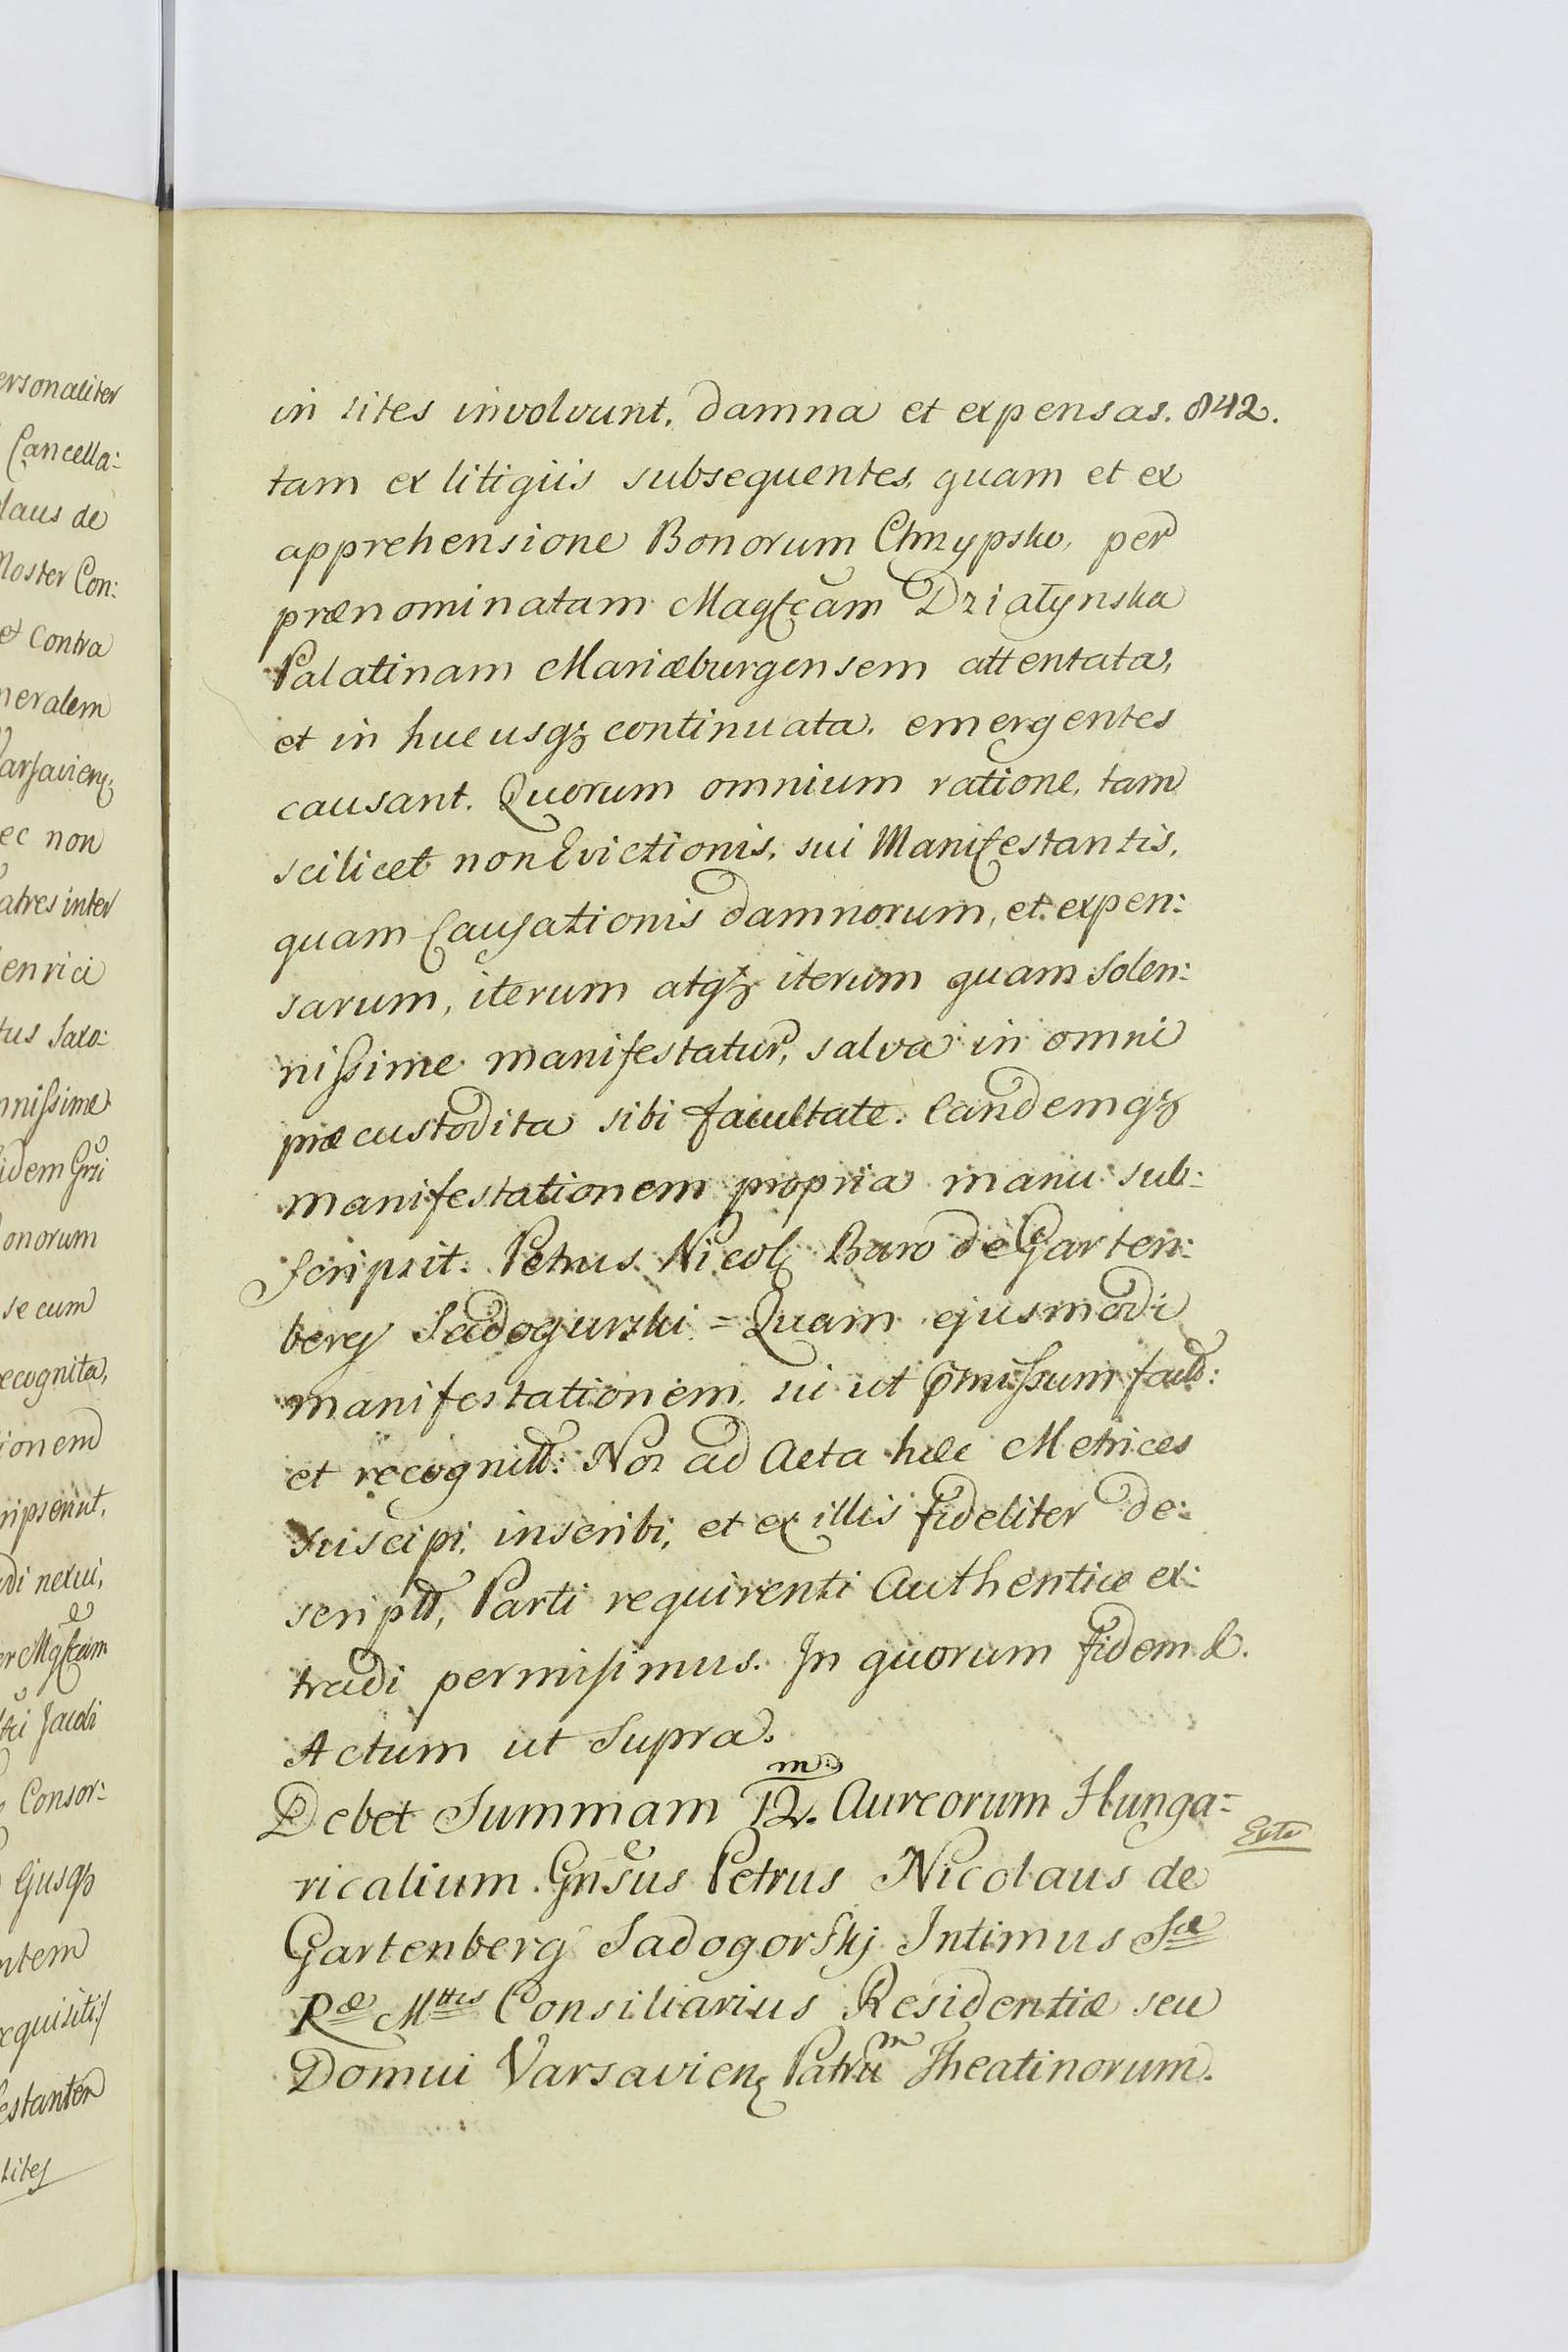 ersonaliter
Cancella:
laus de
Noster Con:
et contra
neralem
ec non
atres inter
enrici
tus Saxo:
nnissime
idem Gni
onorum
se cum
ecognita,
ionem
ripserint,
di nexui,
er Mgfcam
Consor:
Ejusqz
ntem
equisiti
estanter
Lites
in lites involvunt, damna et expensas. 842.
tam ex litigiis subsequentes, quam et ex
apprehensione Bonorum Chrzypsko, per
prænominatam Magfcam Działynska
Palatinam Mariæburgensem attentata,
et in huc usqz continuata, emergentes
causant. Quorum omnium ratione, tam
scilicet non Evictionis, sui Manifestantis,
quam Causationis damnorum, et expen:
sarum, iterum atqz iterum quam Solen:
nissime manifestatur, salva in omni
præcustodita sibi facultate. Eandemqz
manifestationem propria manu sub:
scripsit. Petrus Nicol, Baro de Garten:
berg Sadogurski = Quam ejusmodi
manifestationem, ut pmissum
et recognitt: Nos ad Acta hæc Metrices
suscipi, inscribi, et ex illis fideliter de:
scriptt, Parti requirenti Authentice ex:
tradi permisimus. In quorum fidem &.
Actum ut Supra.
Debet Summam 12.m Aureorum Hunga=
ricalium Gnsus Petrus Nicolaus de
Gartenberg Sadogorskj Intimus Sæ
Ræ Mttis Consiliarius Residentiæ seu
Domui Varsavien, Patrum Theatinorum.